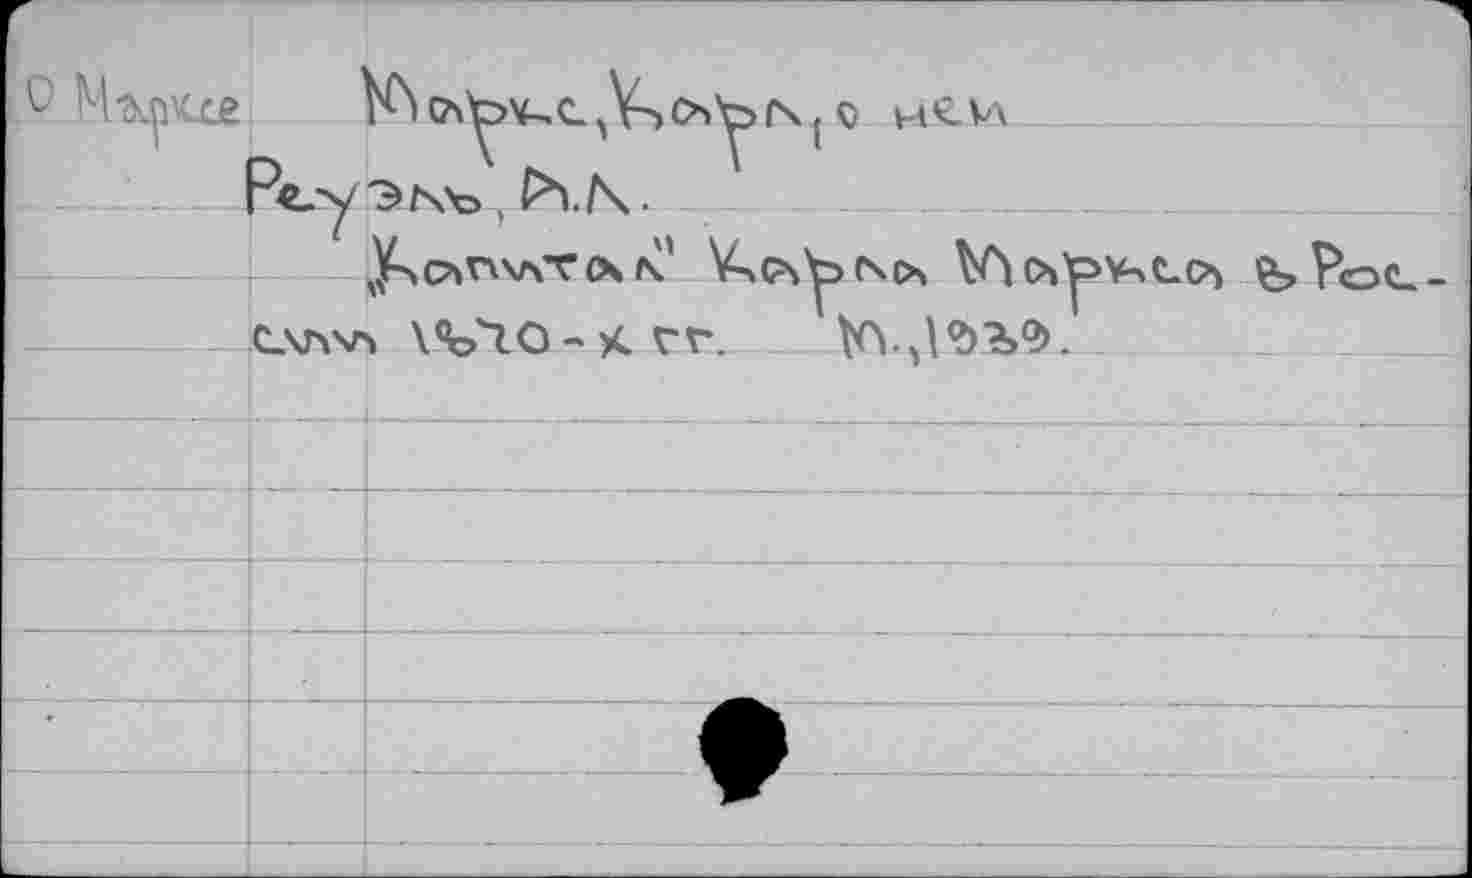 О Марксе Маркс, Карл, о нем
Реуэль, А.Л.
„Капитал" Карла Маркса в Рос-
сии 1870-х гг. М., 1939.